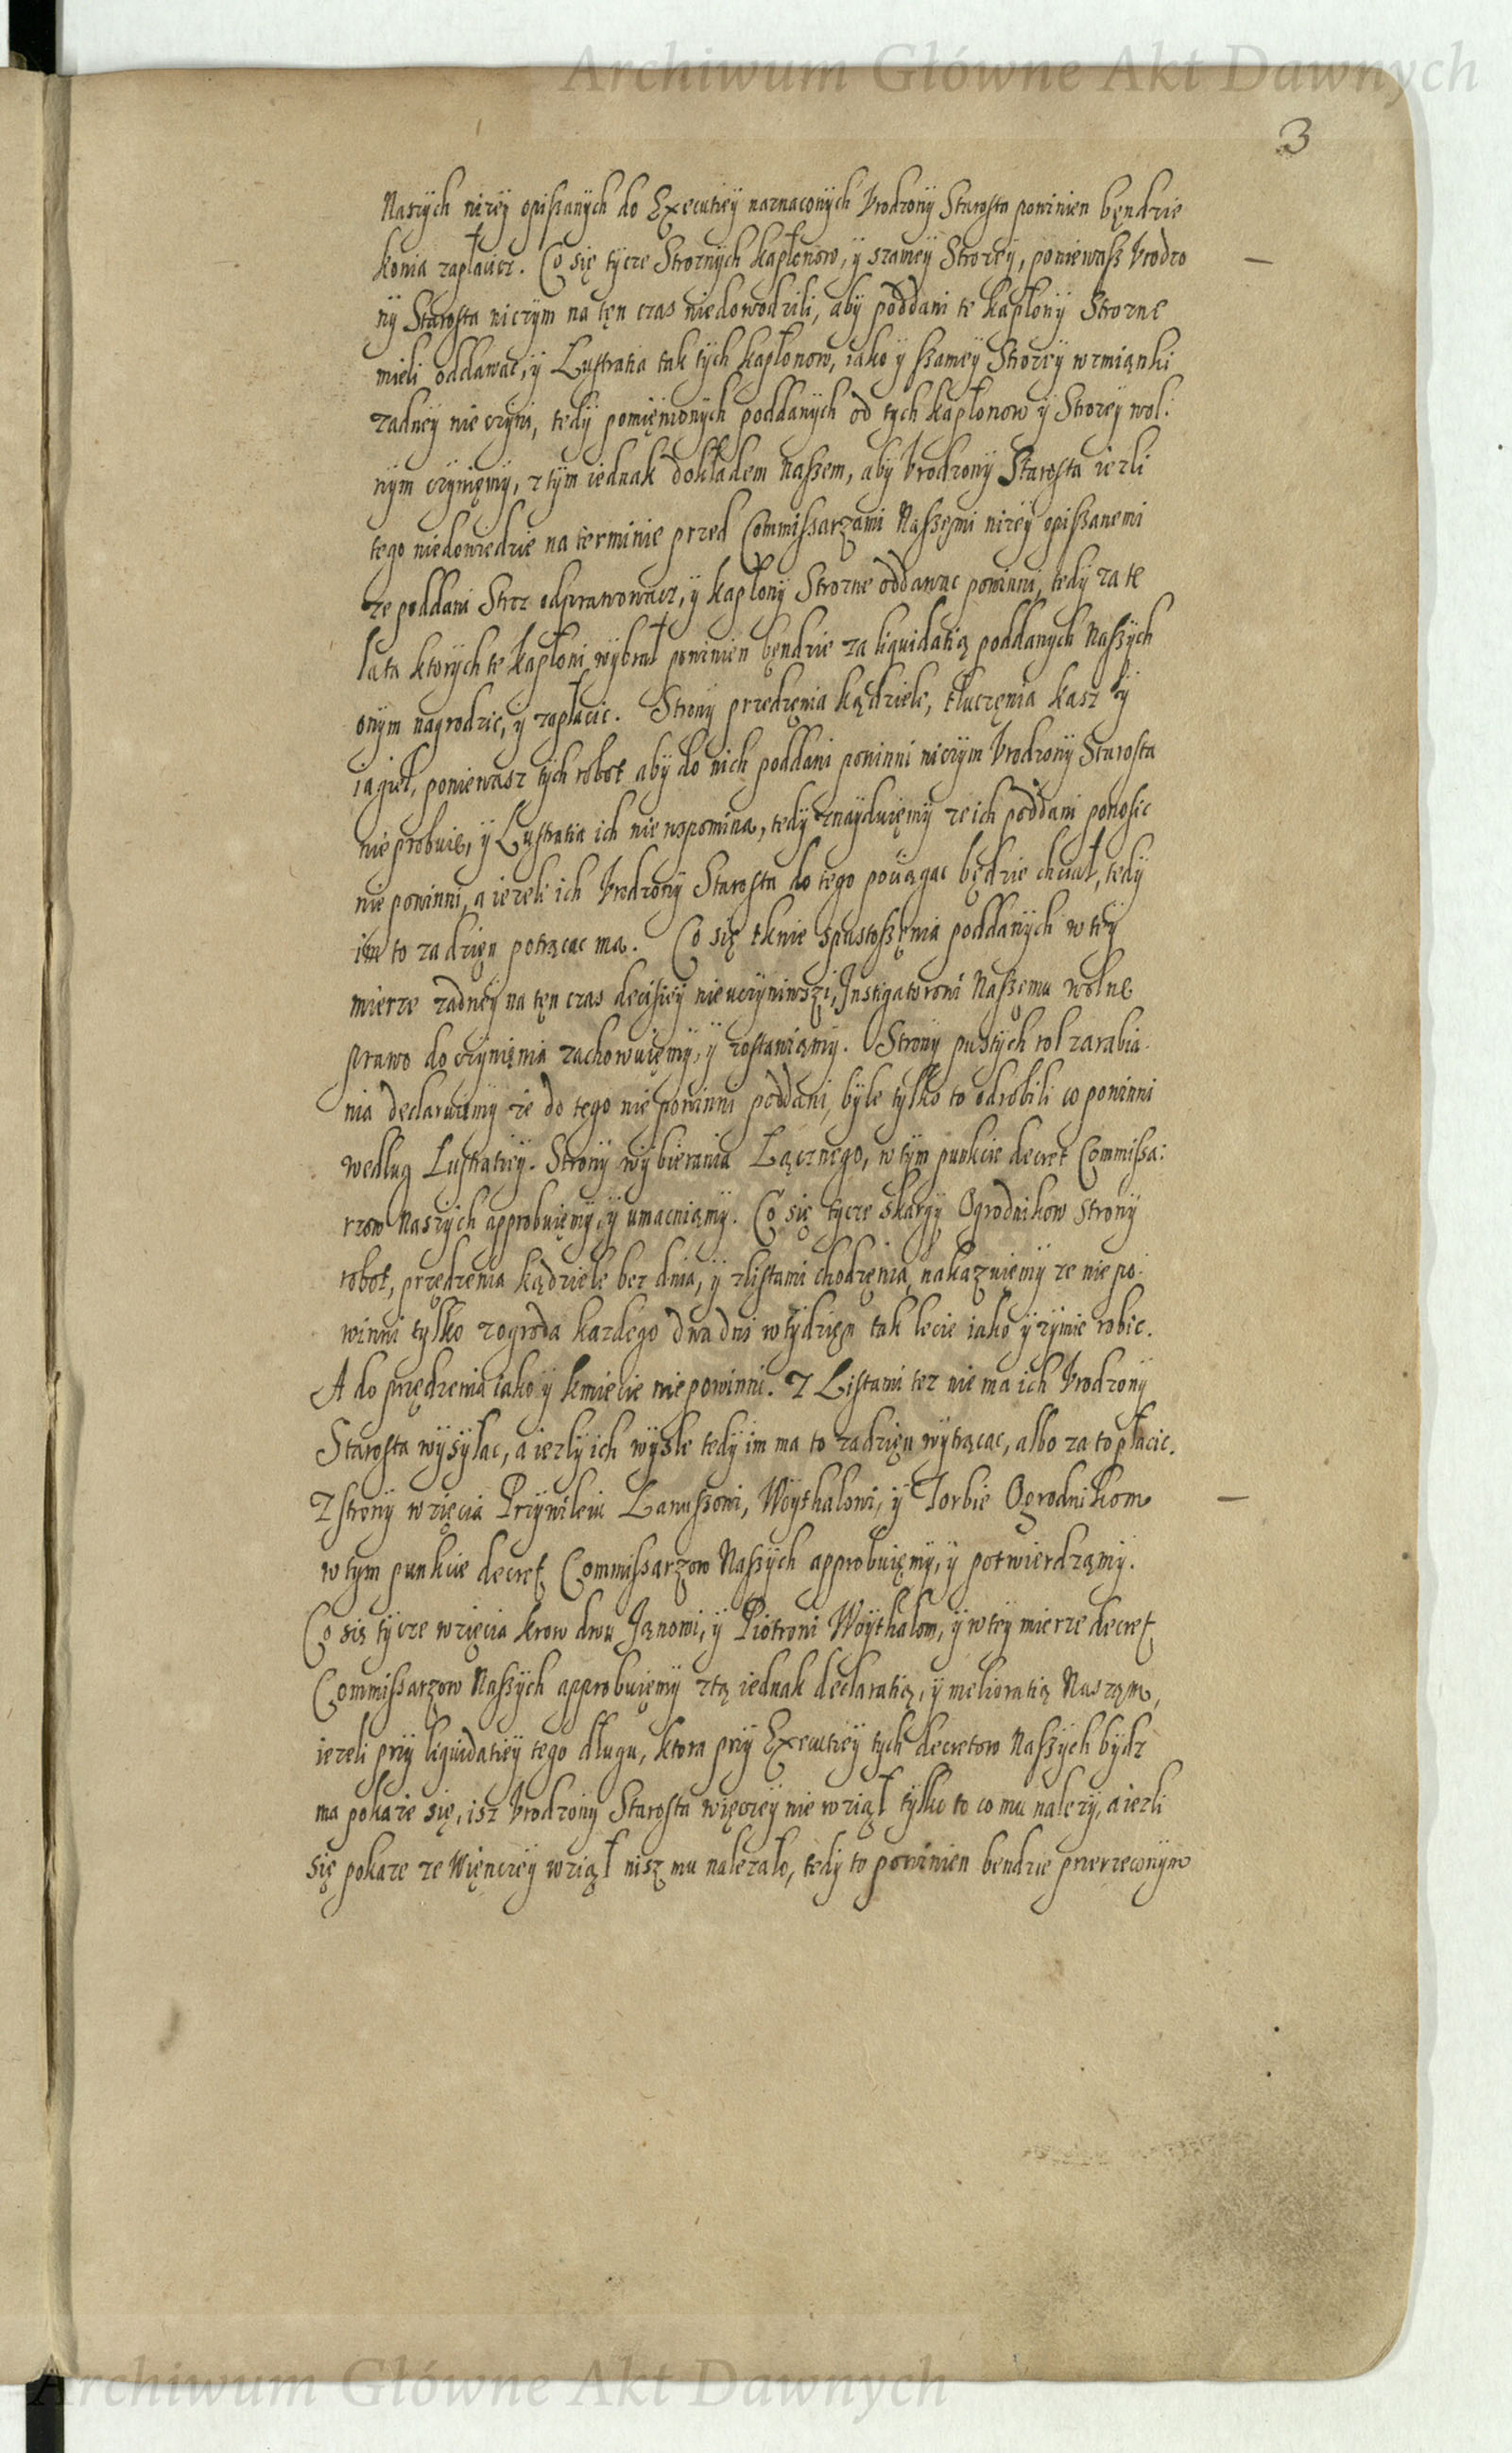 Archiwum Główne Akt Dawnych
3
Naszych nizey opiszanych do Executiey naznaconych Vrodzony Starosta powinien bęndzie
konia zapłacicz. Co się tycze Stroznych kapłonow, y szamey Strozey, poniewasz Vrodzo
ny Starosta niczym na tęn czas niedowodzili, aby poddani te kapłony Strozne
mieli oddawac, y Lustratia tak tych kapłonow, iako y szamey Strozey wzmianki
zadney nie czyni, tedy pomięnionych poddanych od tych kapłonow y Strozey wol:
nym czynięmy, z tym iednak dokładem Naszem, aby Vrodzony Starosta iezli
tego niedowiedzie na terminie przed Commissarzami Naszęmi nizey opiszanemi
ze poddani Stroz odprawowacz, y kapłony Strozne oddawac powinni, tedy za te
lata ktorych te kapłoni wybrał powinien bęndzie za liquidatią poddanych Naszych
onym nagrodzic, y zapłacic. Strony przedzęnia kądziele, tłuczęnia kasz y
iagieł, poniewasz tych robot aby do nich poddani powinni niczym Vrodzony Starosta
nie probuie, y Lustratia ich nie wspomina, tedy znayduięmy ze ich poddani ponosic
nie powinni, a iezeli ich Vrodzony Starosta do tego pociągac będzie chciał, tedy
im to za dzięn potrącac ma. Co się tknie spustoszęnia poddanych w tey
mierze zadney na tęn czas decisiey nieuczyniwszi, Instigatorowi Naszemu wolne
prawo do czynięnia zachowuięmy, y zostawiamy. Strony pustych rol zarabia:
nia declaruiemy ze do tego nie powinni poddani, byle tylko to odrobili co powinni
według Lustratiey. Strony wybierania Łącznego, w tym punkcie decret Commissa:
rzow Naszych approbuięmy, y umacniąmy. Co się tycze skargy Ogrodnikow strony
robot, przędzenia kądziele bez dnia, y zlistami chodzęnia, nakazuiemy ze nie po:
winni tylko z ogroda kazdego dwa dni w tydzięn tak lecie iako y zymie robic.
A do przędzenia iako y kmiecie nie powinni. Z Listami tez nie ma ich Vrodzony
Starosta wysyłac, a iezly ich wysle tedy im ma to za dzięn wytrącac, albo za to płacic.
Z strony wzięcia Przywileiu Lanuszowi, Woythalowi, y Torbie Ogrodnikom
w tym punkcie decret Commissarzow Naszych approbuięmy, y potwierdząmy.
Co się tycze wzięcia krow dwu Janowi, y Piotrowi Woythalom, y w tey mierze decret
Commissarzow Naszych approbuięmy z tą iednak declaratią, y melioratią Nasząm,
iezeli przy liquidatiey tego długu, ktora przy Executiey tych decretow Naszych bydz
ma pokaze się, isz Vrodzony Starosta więcey nie wziął tylko to co mu nalezy, a iezli
się pokaze ze Więncey wziął nisz mu nalezało, tedy to powinien bendzie przerzeconym
Archiwum Główne Akt Dawnych